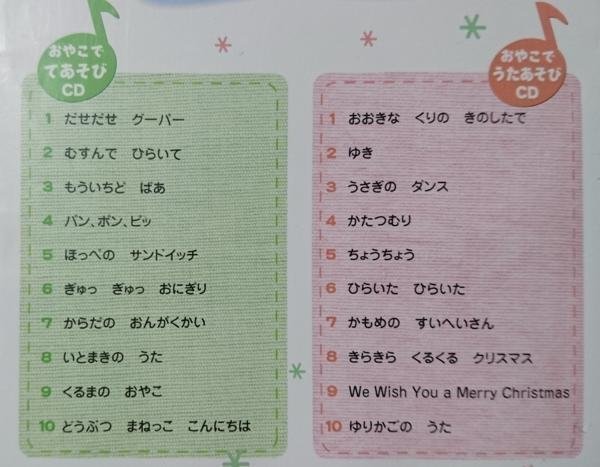 おやこで
てあそび
CD
1 だせだせ グーパー
2 むすんで ひらいて
3 もういちど ばあ
4 パン、ポン、ピッ
5 ほっぺの サンドイッチ
6 ぎゅっ ぎゅっ おにぎり
7 からだの おんがくかい
8 いとまきの うた
9 くるまの おやこ
10 どうぶつ まねっこ こんにちは
おやこで
うたあそび
CD
1 おおきな くりの きのしたで
2 ゆき
3 うさぎの ダンス
4 かたつむり
5 ちょうちょう
6 ひらいた ひらいた
7 かもめの すいへいさん
8 きらきら くるくる クリスマス
9 We Wish You a Merry Christmas
10 ゆりかごの うた